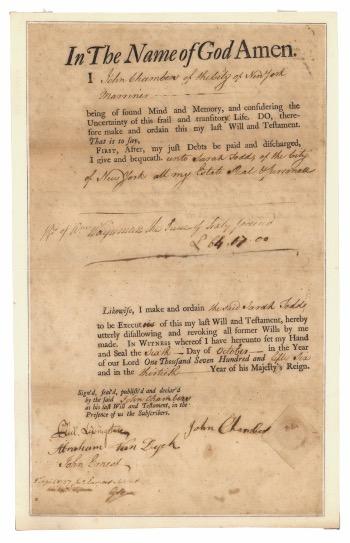 In The Name of God Amen.
I John Chambers of the City of New York
Marriner
being of found Mind and Memory, and confidering the
Uncertainty of this frail and tranfitory Life. DO, there-
fore make and ordain this my laft Will and Teftament.
That is to fay,
FIRST, After, my juft Debts be paid and difcharged,
I give and bequeath. unto Sarah Dodds of the City
of New York all my Estate Real & Personall
of the Sum of Sixty
£ 64.17.00
Likewife, I make and ordain the said Sarah Dodds
to be EXECUtrix of this my laft Will and Teftament, hereby
utterly difallowing and revoking all former Wills by me
made. IN WITNESS whereof I have hereunto fet my Hand
and Seal the Sixth Day of October in the Year
of our Lord One Thoufand Seven Hundred and fifty Six
and in the thirtieth Year of his Majefty's Reign.
Sign'd, feal'd, publifh'd and declar'd
by the faid John Chambers
as his laft Will and Teftament, in the
Prefence of us the Subfcribers.
John Chambers
Livingston
Abraham Van Dyck
John Ernest